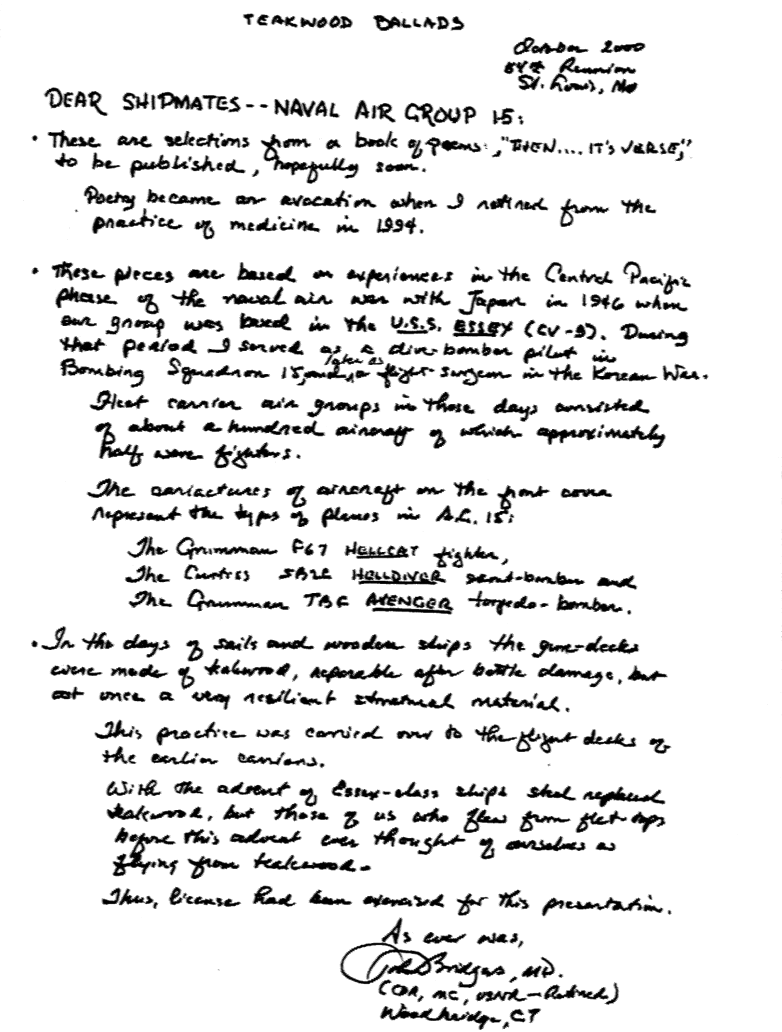 TEAKWOOD BALLADS
October 2000
54th Reunion
St. Louis, Mo
DEAR SHIPMATES -- NAVAL AIR GROUP 15:
• These are selections from a book of poems: "THEN.... IT'S VERSE,"
to be published, hopefully soon.
Poetry became an avocation when I retired from the
practice of medicine in 1994.
• These pieces are based on experiences in the Central Pacific
phase of the naval air war with Japan in 1946 when
our group was based in the U.S.S. ESSEX (CV-9). During
that period I served as a dive-bomber pilot in
later as
Bombing Squadron 15, and, a flight surgeon in the Korean War.
Fleet carrier air groups in those days consisted
of about a hundred aircraft of which approximately
half were fighters.
The cariactures of aircraft on the front cover
represent the types of planes in A.G. 15:
The Grumman F67 HELLCAT fighter,
The Curtiss SB2C HELLDIVER scout-bomber and
The Grumman TBF AVENGER torpedo-bomber.
• In the days of sails and wooden ships the gun-decks
were made of teakwood, reparable after battle damage, but
at once a very resilient structural material.
This practice was carried over to the flight decks of
the earlier carriers.
With the advent of Essex-class ships steel replaced
teakwood, but those of us who flew from flat-tops
before this advent ever thought of ourselves as
flying from teakwood.
Thus, license had been exercised for this presentation.
As ever was,
John Bridgers, MD.
(CDR, MC, USNR - Retired)
Woodbridge, CT